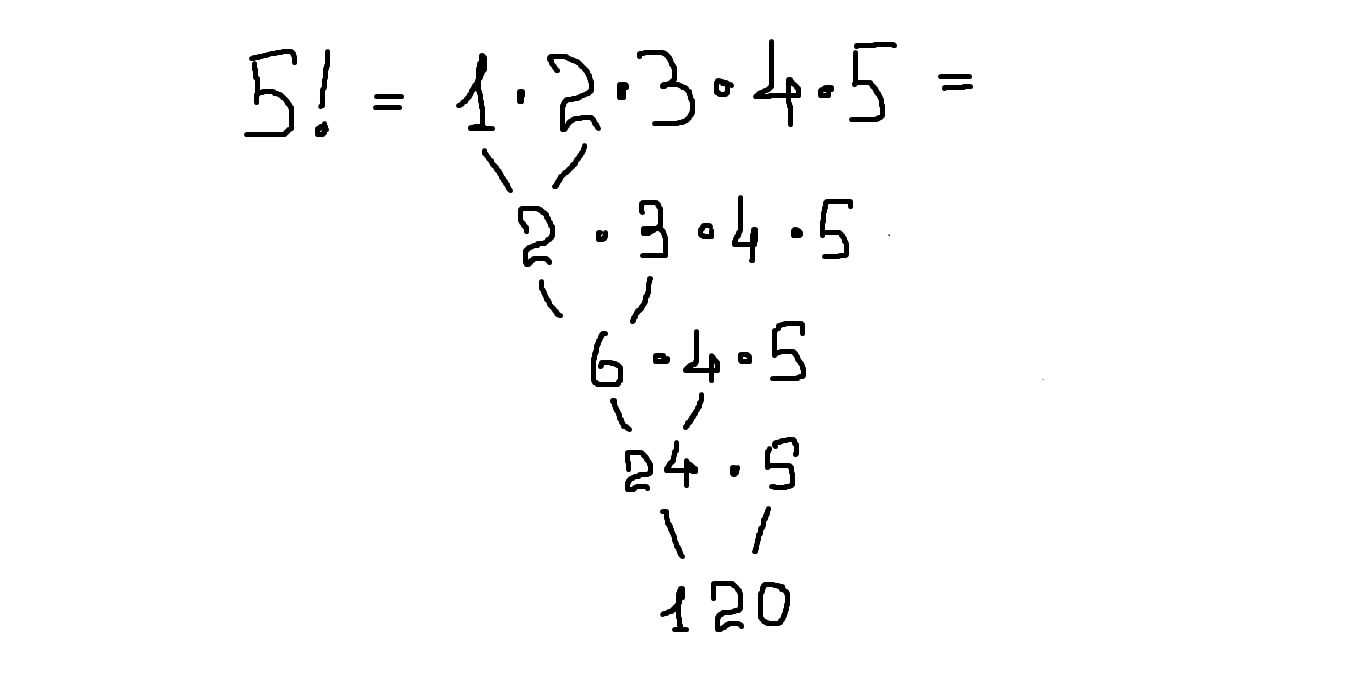 5! = 1 · 2 · 3 · 4 · 5 =
2 · 3 · 4 · 5
6 · 4 · 5
24 · 5
120